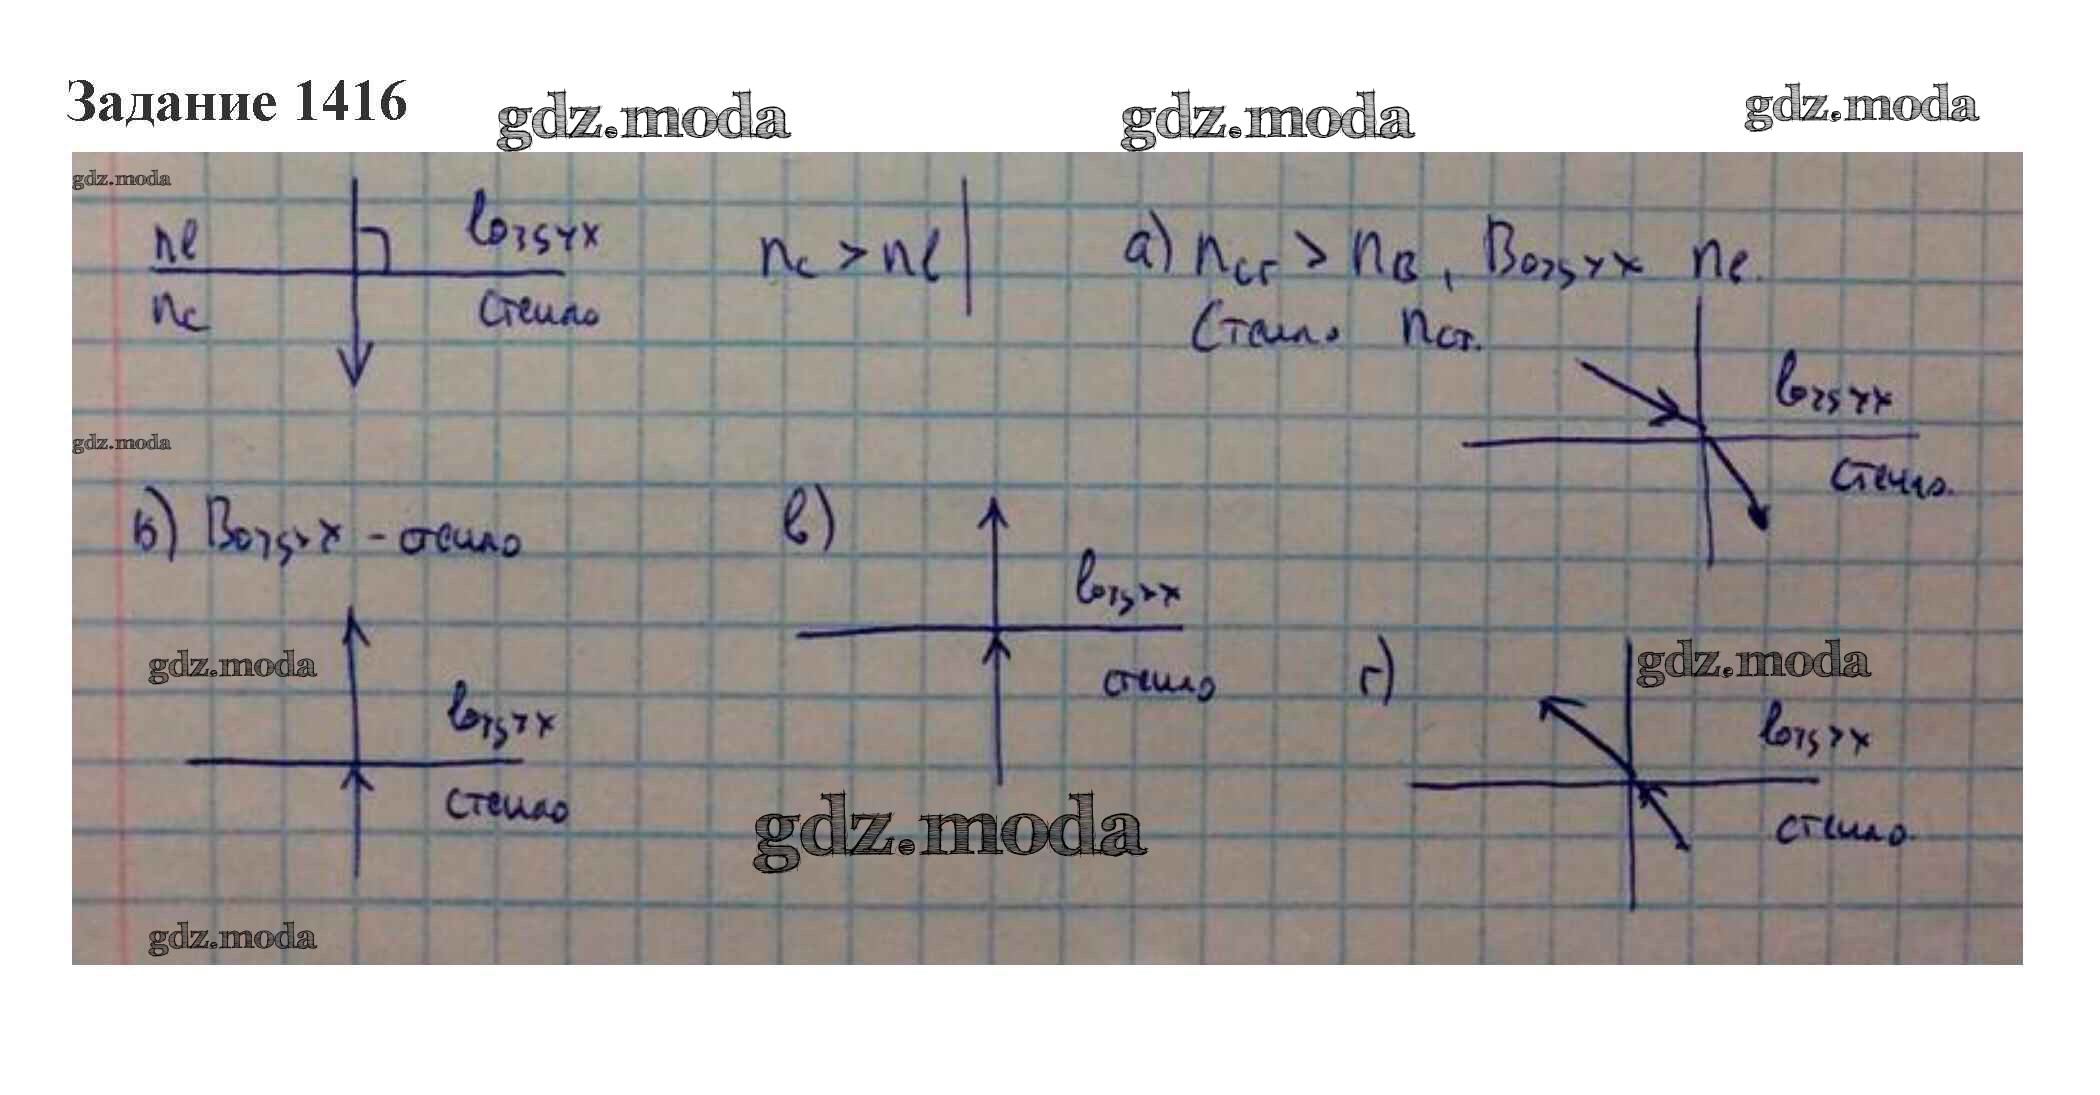 Задание 1416
gdz.moda gdz.moda gdz.moda
gdz.moda
nв воздух
nс стекло
nс > nв
а) nст > nв, Воздух nв.
Стекло nст.
воздух
стекло.
gdz.moda
б) Воздух - стекло
воздух
стекло
gdz.moda
в)
воздух
стекло
gdz.moda
г)
gdz.moda
воздух
стекло.
gdz.moda